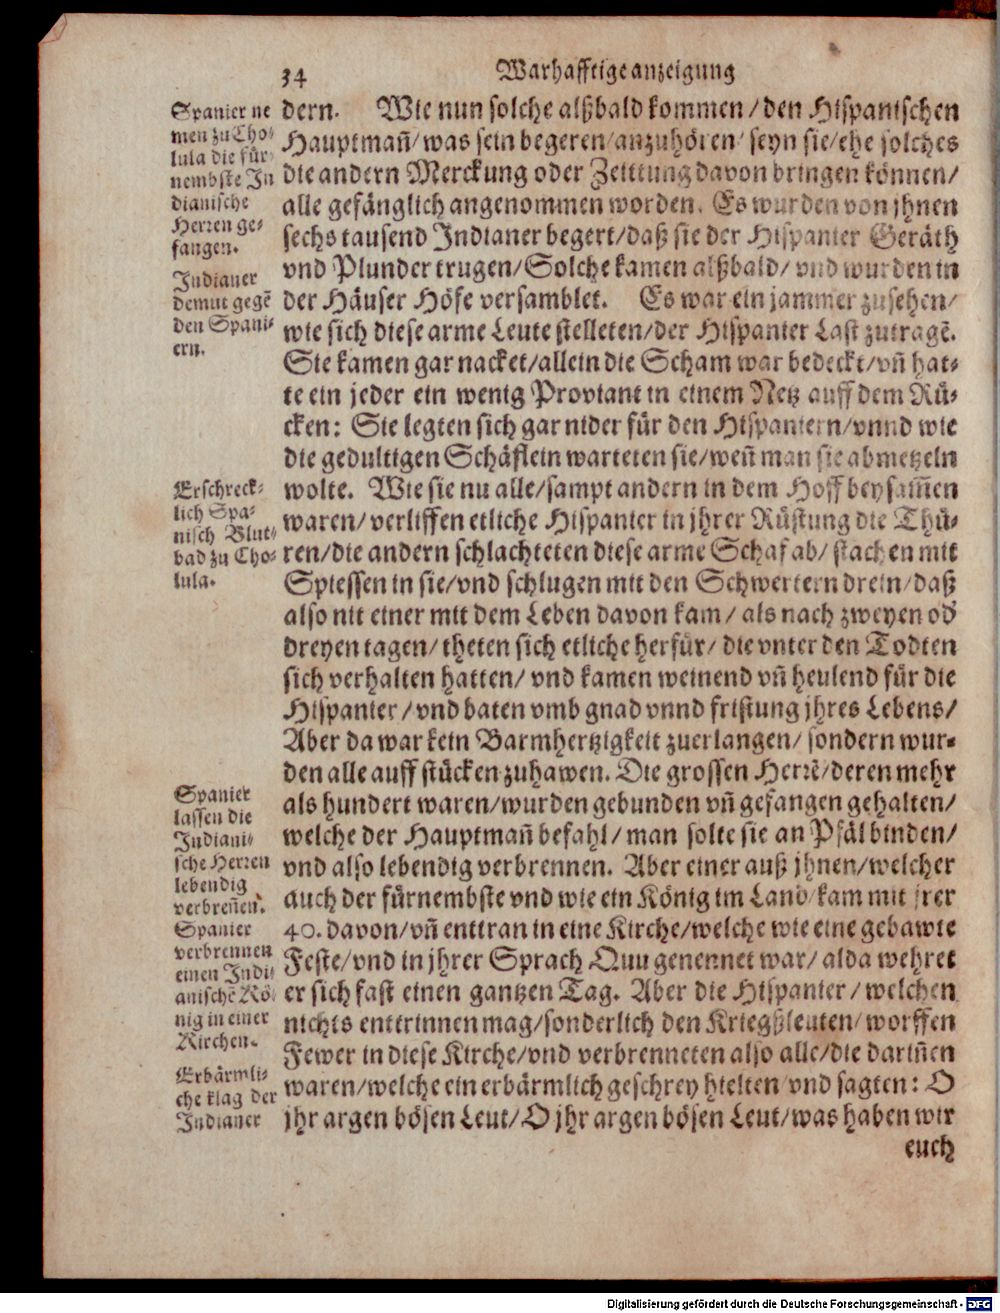 34
Warhafftige anzeigung
Spanier ne
men zu Cho-
lula die für
nembste In
dianische
Herren ge-
fangen.
Indianer
demut gegē
den Spani-
ern.
Erschreck-
lich Spa-
nisch Blut-
bad zu Cho-
lula.
Spanier
lassen die
Indiani-
sche Herren
lebendig
verbreñen.
Spanier
verbrennen
einen Indi-
anischē Kö-
nig in einer
Kirchen.
Erbärmli-
che klag der
Indianer
dern. Wie nun solche alßbald kommen / den Hispanischen
Hauptmañ / was sein begeren / anzuhören / seyn sie / ehe solches
die andern Merckung oder Zeittung davon bringen können /
alle gefänglich angenommen worden. Es wurden von jhnen
sechs tausend Indianer begert / daß sie der Hispanier Geräth
vnd Plunder trugen / Solche kamen alßbald / vnd wurden in
der Häuser Höfe versamblet. Es war ein jammer zusehen /
wie sich diese arme Leute stelleten / der Hispanier Last zutragē.
Sie kamen gar nacket / allein die Scham war bedeckt / vñ hat-
te ein jeder ein wenig Proviant in einem Netz auff dem Rü-
cken: Sie legten sich gar nider für den Hispaniern / vnnd wie
die gedultigen Schäflein warteten sie / weñ man sie abmetzeln
wolte. Wie sie nu alle / sampt andern in dem Hoff beysam̃en
waren / verliffen etliche Hispanier in jhrer Rüstung die Thü-
ren / die andern schlachteten diese arme Schaf ab / stachen mit
Spiessen in sie / vnd schlugen mit den Schwertern drein / daß
also nit einer mit dem Leben davon kam / als nach zweyen od'
dreyen tagen / theten sich etliche herfür / die vnter den Todten
sich verhalten hatten / vnd kamen weinend vñ heulend für die
Hispanier / vnd baten vmb gnad vnnd fristung jhres Lebens /
Aber da war kein Barmhertzigkeit zuerlangen / sondern wur-
den alle auff stücken zuhawen. Die grossen Herrē / deren mehr
als hundert waren / wurden gebunden vñ gefangen gehalten /
welche der Hauptmañ befahl / man solte sie an Pfäl binden /
vnd also lebendig verbrennen. Aber einer auß jhnen / welcher
auch der fürnembste vnd wie ein König im Land / kam mit jrer
40. davon / vñ enttran in eine Kirche / welche wie eine gebawte
Feste / vnd in jhrer Sprach Quu genennet war / alda wehret
er sich fast einen gantzen Tag. Aber die Hispanier / welchen
nichts enttrinnen mag / sonderlich den Kriegßleuten / worffen
Fewer in diese Kirche / vnd verbrenneten also alle / die dariñen
waren / welche ein erbärmlich geschrey hielten / vnd sagten: O
jhr argen bösen Leut / O jhr argen bösen Leut / was haben wir
euch
Digitalisierung gefördert durch die Deutsche Forschungsgemeinschaft - DFG